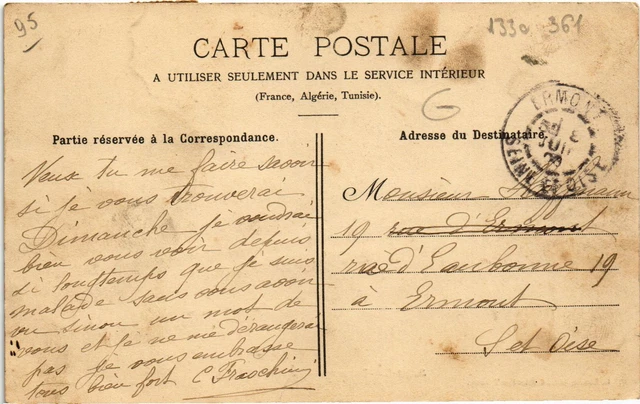 95
133a 361
CARTE POSTALE
A UTILISER SEULEMENT DANS LE SERVICE INTÉRIEUR
(France, Algérie, Tunisie).
G
ERMONT
SEINE ET OISE
Partie réservée à la Correspondance.
Veux tu me faire savoir
si je vous trouverai
Dimanche je voudrai
bien vous voir depuis
si longtemps que je suis
malade sans vous avoir
vu sinon un mot de
vous et je ne me dérangerai
pas je vous embrasse
tous bien fort C
Adresse du Destinataire.
Monsieur
19 rue d'Ermont
rue d'Eaubonne 19
à Ermont
S et Oise